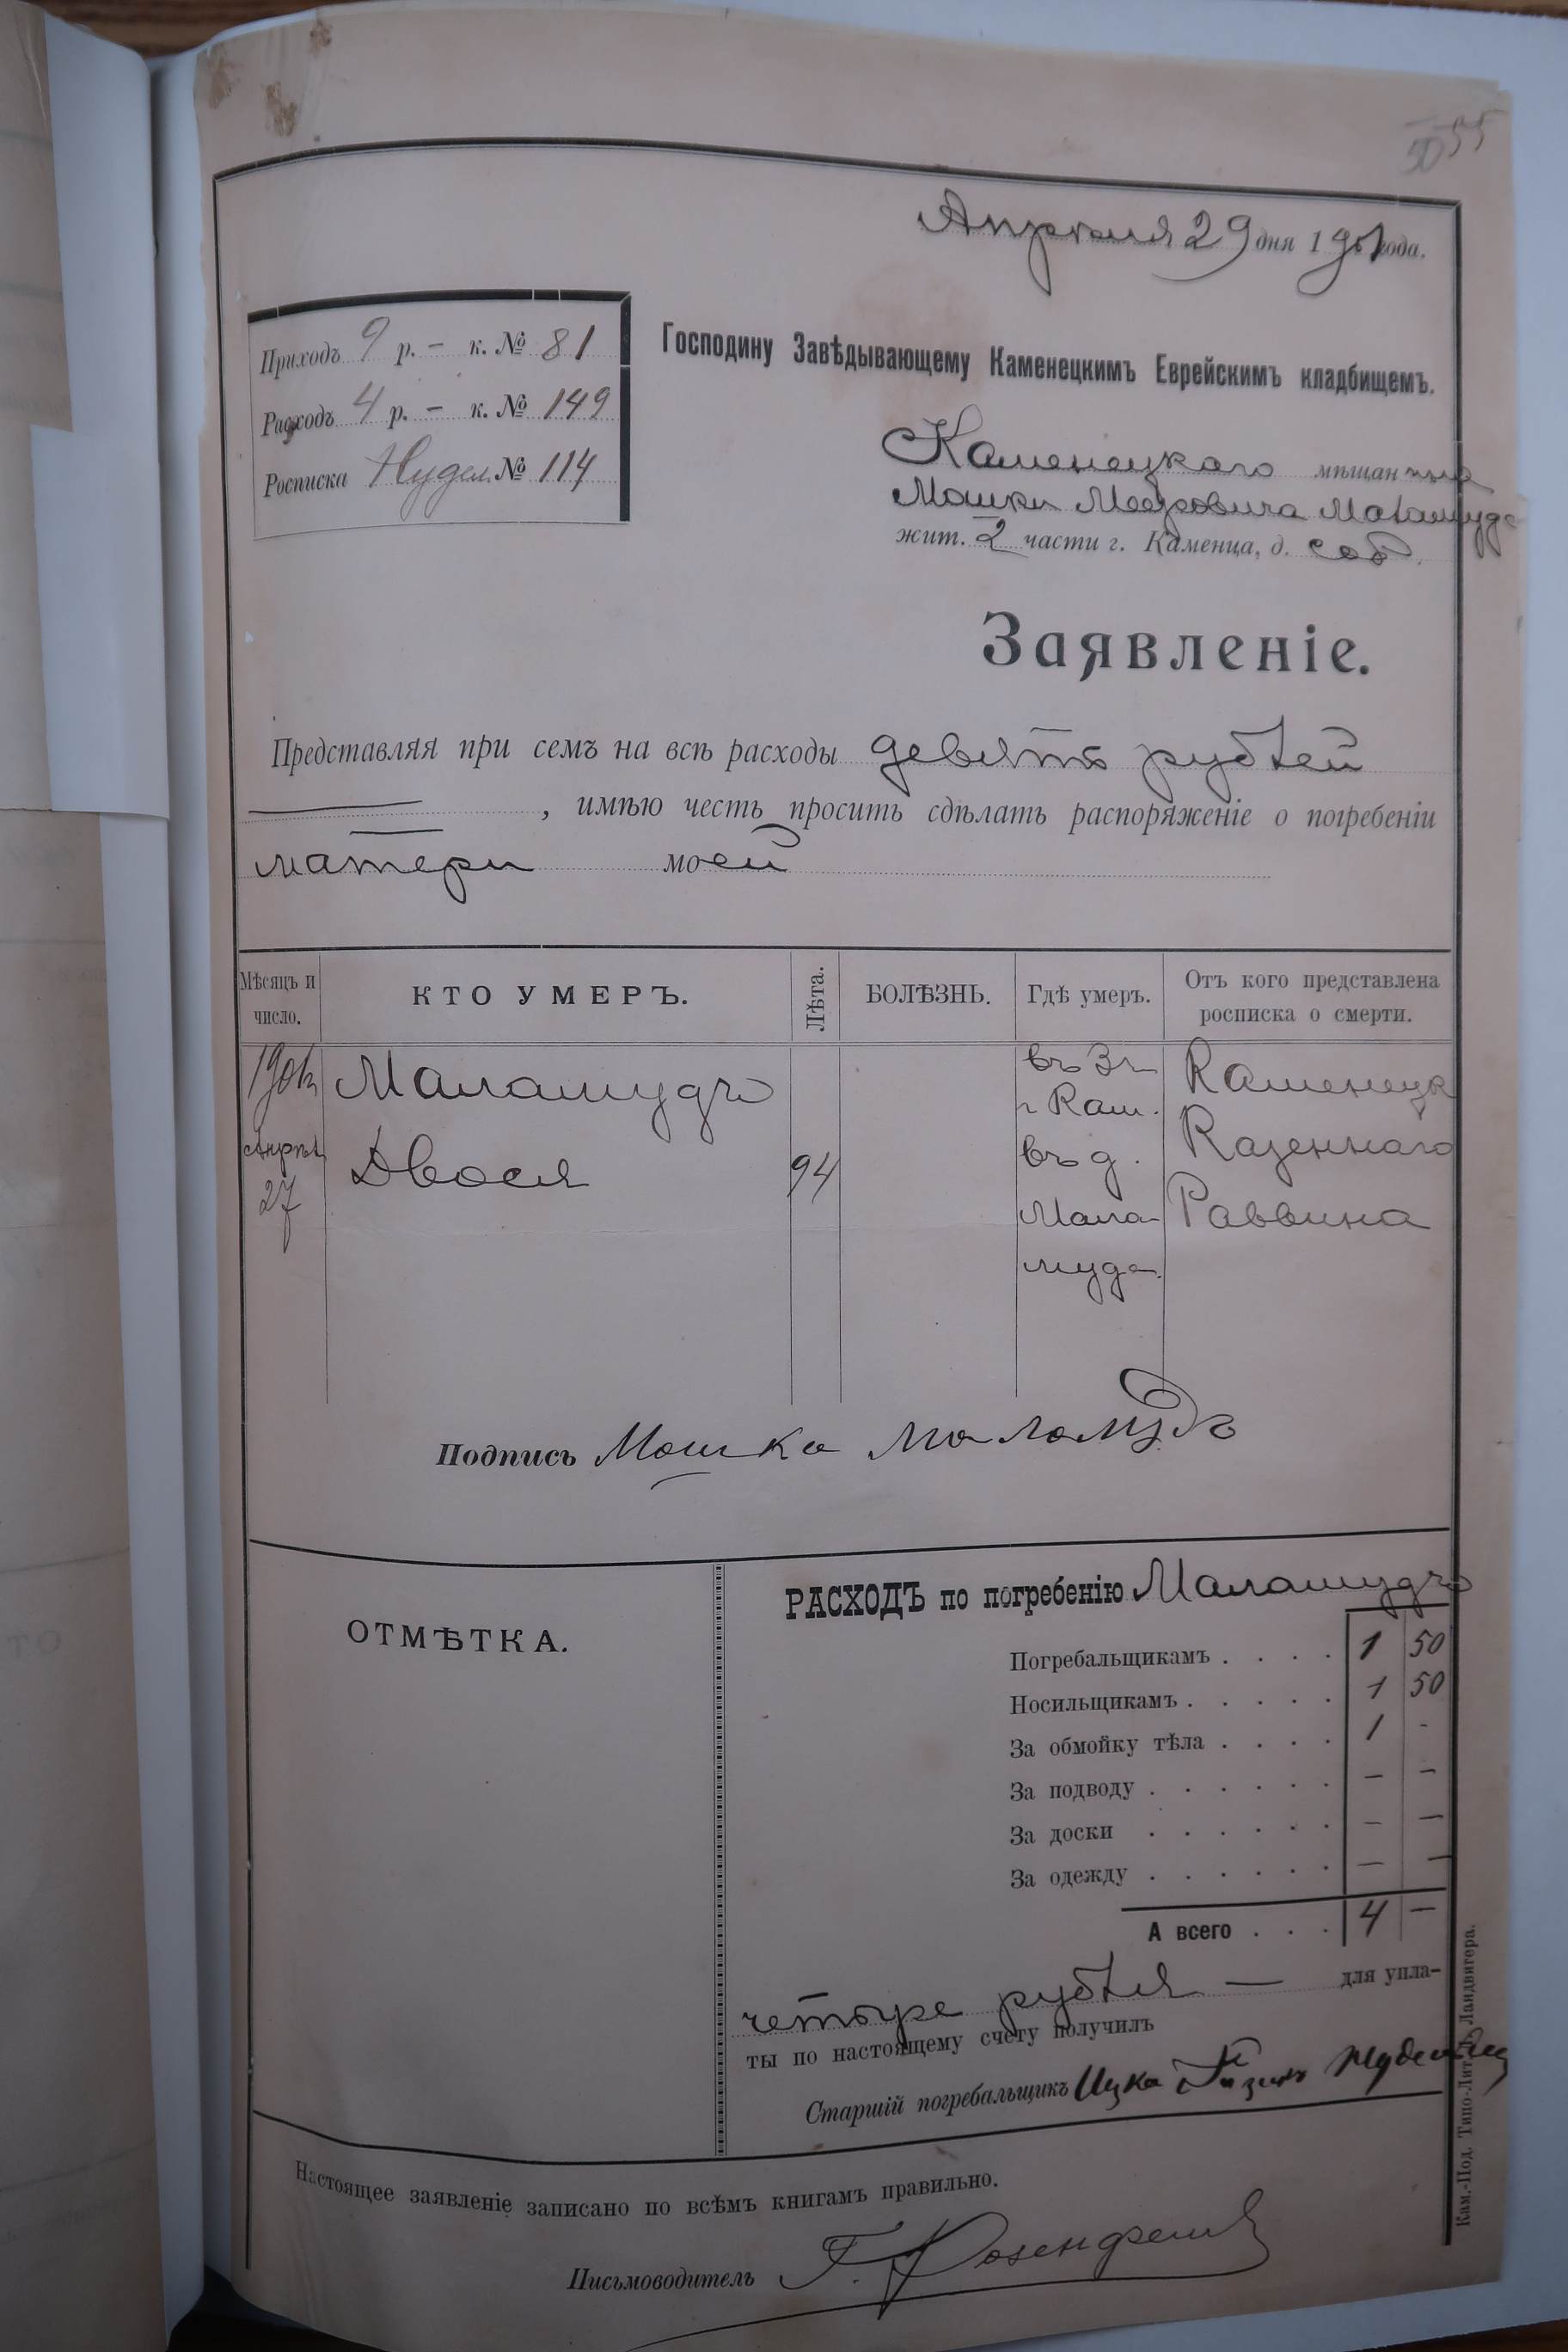 50 55
Апрѣля 29 дня 1901 года.
Приходъ 9 р. – к. № 81
Расходъ 4 р. – к. № 149
Росписка Нудел. № 114
Господину Завѣдывающему Каменецкимъ Еврейскимъ кладбищемъ.
Каменецкаго мѣщанина
Мошки Меeровича Маламуда
жит. 2 части г. Каменца, д. соб.
Заявленіе.
Представляя при семъ на всѣ расходы девять рублей
, имѣю честь просить сдѣлать распоряженіе о погребеніи
матери моей
Мѣсяцъ и число. КТО УМЕРЪ. Лѣта. БОЛѢЗНЬ. Гдѣ умеръ. Отъ кого представлена росписка о смерти.
1901 Маламудъ въ г. Кам. Каменецк
Апрѣл Двося 94 въ д. Казеннаго
27 Мала- Раввина
муда.
Подпись Мошка Маламудъ
ОТМѢТКА.
РАСХОДЪ по погребенію Маламудъ
Погребальщикамъ . . . . 1 50
Носильщикамъ . . . . . 1 50
За обмойку тѣла . . . . 1 -
За подводу . . . . . . – –
За доски . . . . . . – –
За одежду . . . . . . – –
А всего . . . 4 –
четыре рубля — для упла-
ты по настоящему счету получилъ
Старшій погребальщикъ Ицка
Настоящее заявленіе записано по всѣмъ книгамъ правильно.
Письмоводитель Г. Розенфельд
Кам.-Под. Типо-Лит. Ландвигера.